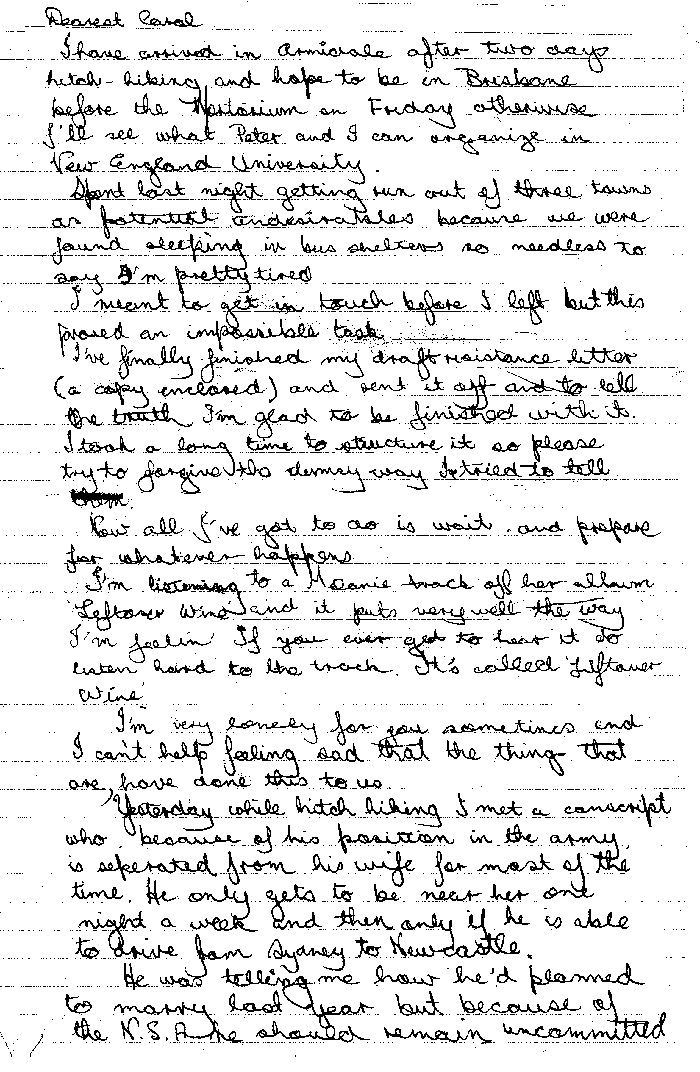 Dearest Carol
I have arrived in Armidale after two days
hitch-hiking and hope to be in Brisbane
before the Moratorium on Friday otherwise
I'll see what Peter and I can organize in
New England University.
Spent last night getting run out of three towns
as potential undesirables because we were
found sleeping in bus shelters so needless to
say I'm pretty tired
I meant to get in touch before I left but this
proved an impossible task
I've finally finished my draft resistance letter
(a copy enclosed) and sent it off and to tell
the truth I'm glad to be finished with it.
I took a long time to structure it so please
try to forgive the clumsy way I tried to tell
them.
Now all I've got to do is wait and prepare
for whatever happens
I'm listening to a Melanie track off her album
Leftover Wine and it puts very well the way
I'm feelin' If you ever get to hear it do
listen hard to the track. It's called Leftover
Wine
I'm very lonely for you sometimes and
I can't help feeling sad that the thing that
are, have done this to us.
Yesterday while hitch hiking I met a conscript
who because of his position in the army,
is seperated from his wife for most of the
time. He only gets to be near her one
night a week and then only if he is able
to drive from Sydney to Newcastle.
He was telling me how he'd planned
to marry last year but because of
the N.S.A. he should remain uncommitted